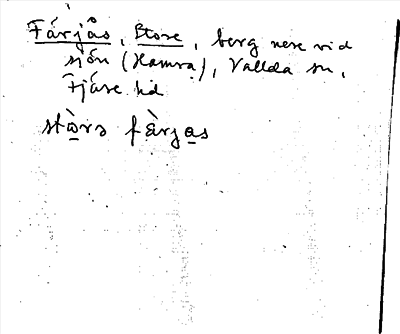 Färjås, Store, berg nere vid
sjön (Hamra), Vallda sn,
Fjäre hd
stɷ̀rə fæ̀rjas